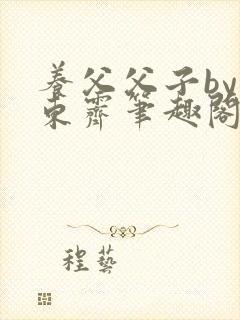 养父父子by
东霽笔趣阁
程艺